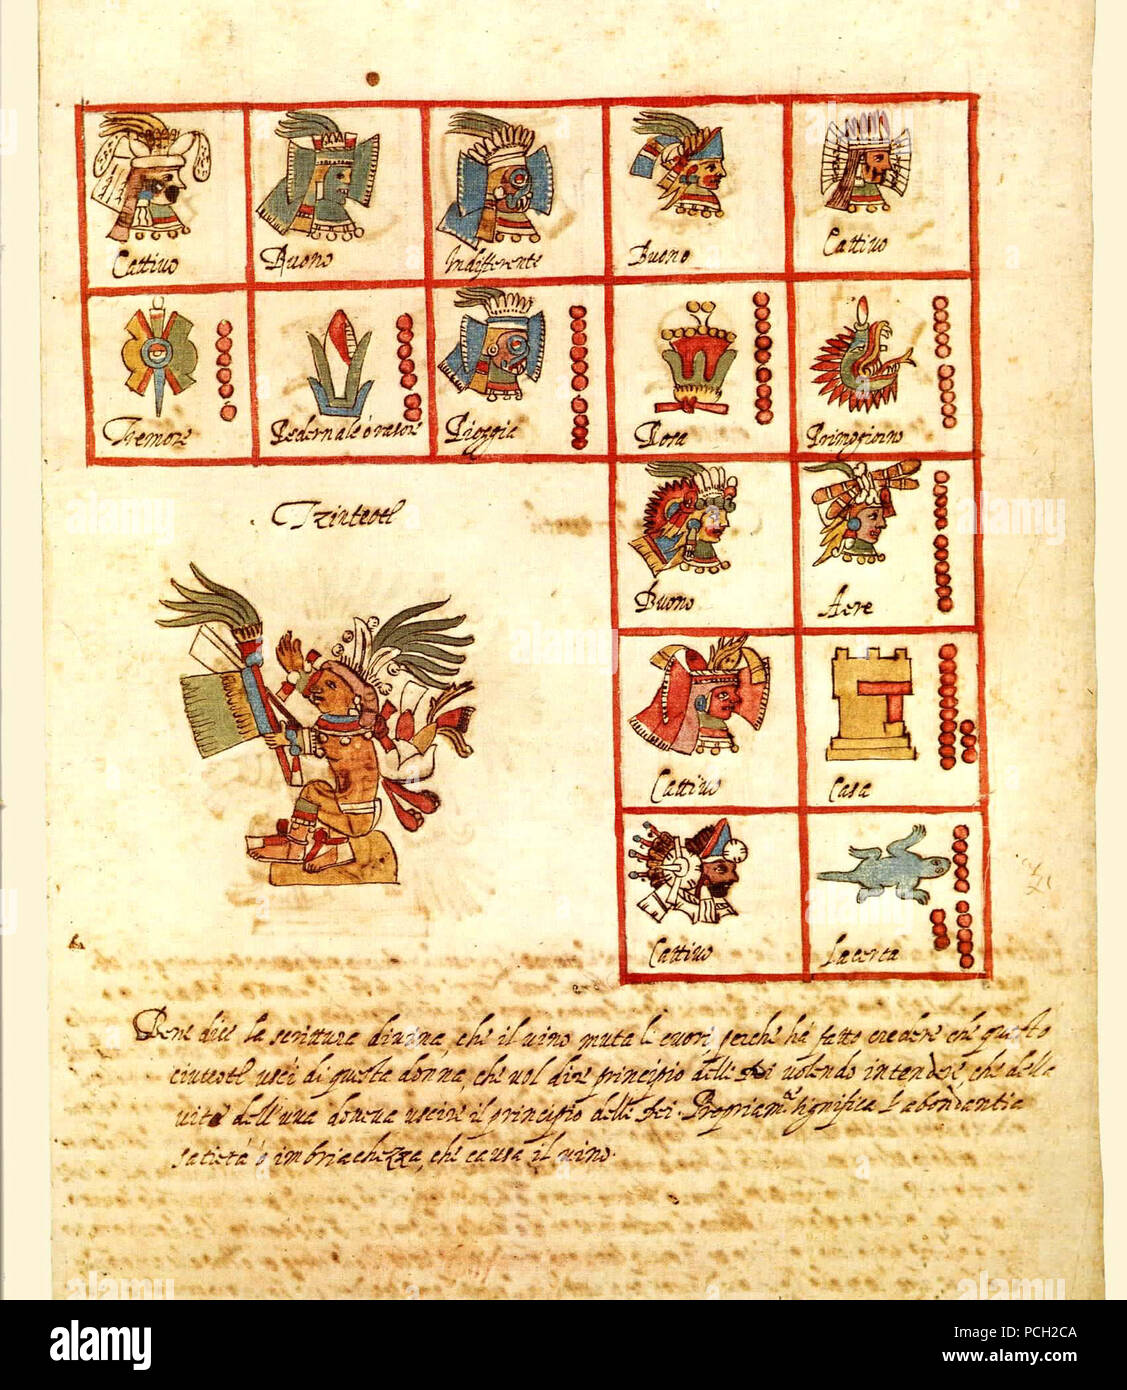 Cattiuo Buono Indifferente Buono Cattiuo
Tremore Pedernale ó rasore Pioggia Rosa Primogiorno
Buono Aere
Tzinteotl
Cattiuo Casa
Cattiuo Lacerta
Bene dice la scrittura diuina, che il uino muta li cuori, perche há fatto credere che questo
ciuteotl usci di questa donna, che uol dire principio delli Dei uolendo intendere, che della
uite dell'uua doueua uscire il principio delli Dei. Propriam.te significa l'abondantia
satietá ó imbriachezza, che causa il uino.
alamy
Image ID: PCH2CA
www.alamy.com